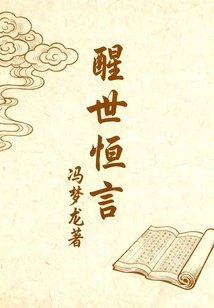 醒世恒言
冯梦龙著